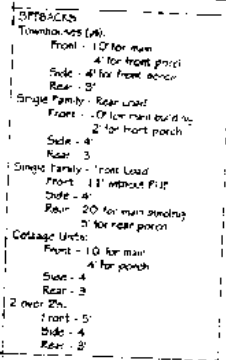 SETBACKS
Townhouses
Front - 10' for main
4' for front porch
Side - 4' for front porch
Rear - 3'
Single Family - Rear Load
Front - for main building
2' for front porch
Side - 4'
Rear 3
Single Family - Front Load
Front
Side - 4'
Rear 20 for main building
5' for rear porch
Cottage Units:
Front - 10 for main
4' for porch
Side - 4
Rear - 3
2 over 2's.
Front - 5'
Side - 4
Rear - 3'